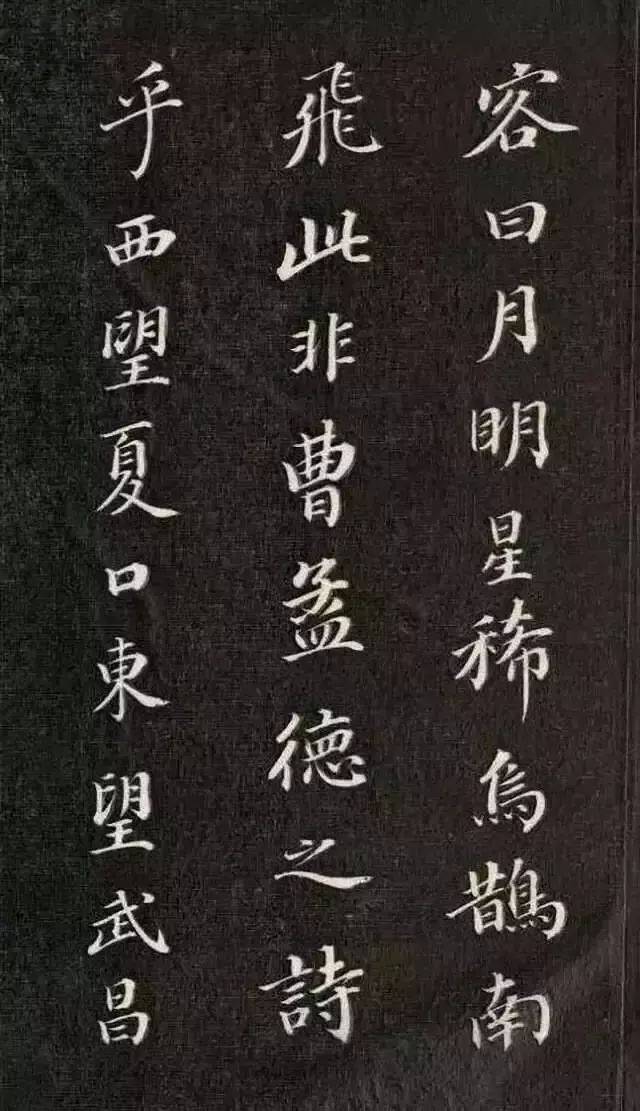 容曰月明星稀烏鵲南
飛此非曹孟德之詩
乎西望夏口東望武昌